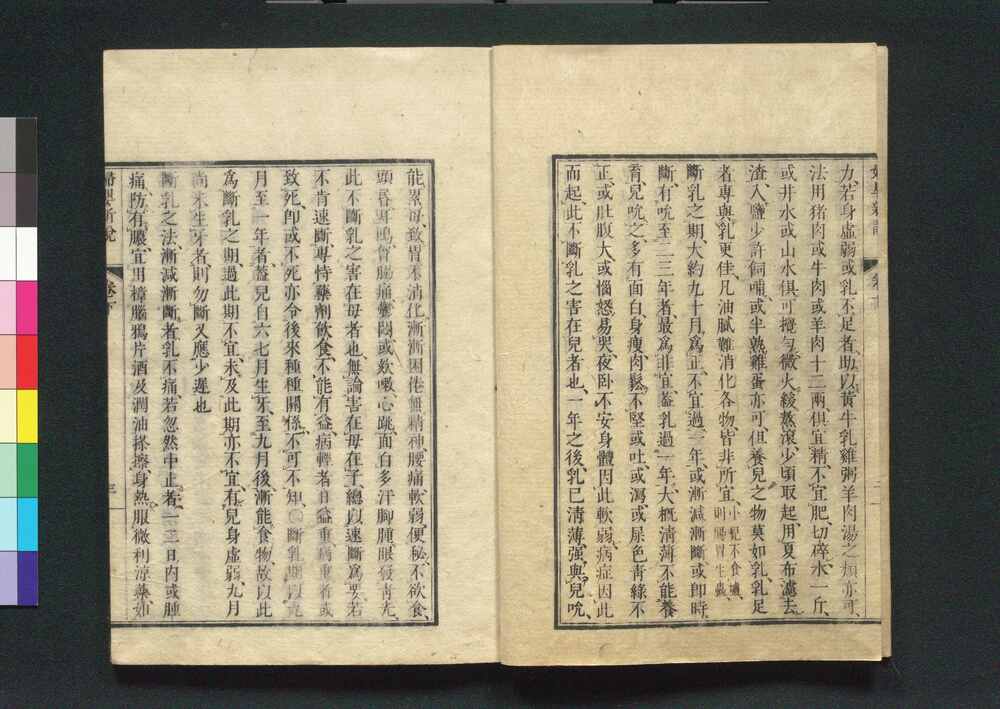 力、若身虛弱或乳不足者、助以黃牛乳雞粥羊肉湯之類亦可、
法用猪肉或牛肉或羊肉十二兩、俱宜精、不宜肥、切碎、水一斤、
或井水或山水俱可、攪勻、微火緩熬、滾少頃取起、用夏布濾去
渣、入鹽少許飼哺、或半熟雞蛋亦可、但養兒之物莫如乳、乳足
者專與乳更佳、凡油膩難消化各物、皆非所宜、小兒不食鹽、則腸胃生蟲、
斷乳之期、大約九十月爲正、不宜過一年、或漸減漸斷、或卽時
斷、有吮至二三年者、最爲非宜、蓋乳過一年、大槪淸薄不能養
育、兒吮之多有面白身瘦肉鬆不堅、或吐或瀉、或屎色靑綠不
正、或肚腹大、或惱怒易哭、夜卧不安、身體因此軟弱、病症因此
而起、此不斷乳之害在兒者也、一年之後、乳已淸薄、强與兒吮、
能累母、致胃不消化、漸漸困倦無精神、腰痛軟弱、便秘、不欲食、
頭昏耳鳴、胃腸痛、鬱悶、或欬嗽、心跳、面白多汗、脚腫、眼發靑光、
此不斷乳之害在母者也、無論害在母在子、總以速斷爲要、若
不肯速斷、專恃藥劑飮食、不能有益、病輕者日益重、病重者或
致死、卽或不死、亦令後來種種關係、不可不知、斷乳期以九
月至一年者、蓋兒自六七月生牙、至九月後漸能食物、故以此
爲斷乳之期、過此期不宜、未及此期亦不宜、有兒身虛弱、九月
尚未生牙者、則勿斷、又應少遲也
斷乳之法、漸減漸斷者、乳不痛、若忽然中止者、一二日內或腫
痛、防有膿、宜用樟腦鴉片酒及潤油搽擦、身熱服微利涼藥、如
婦嬰新說
卷下
三